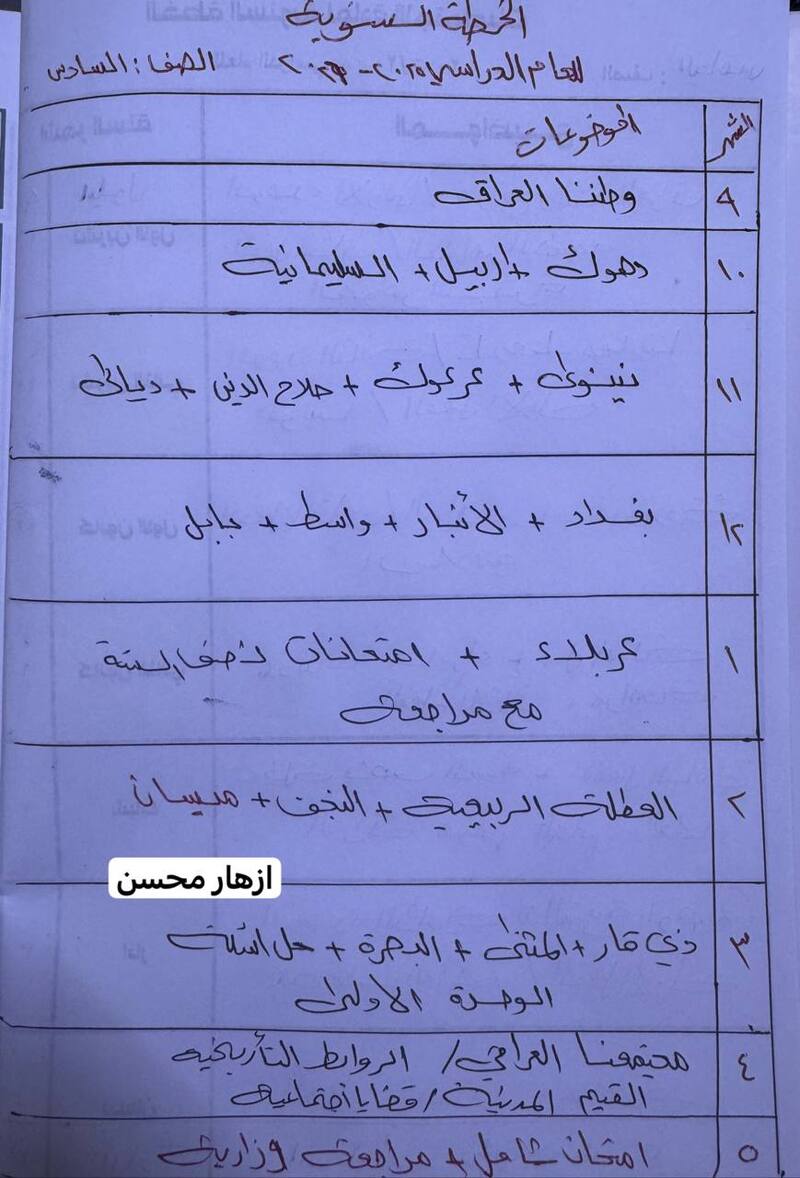 الخطة السنوية
للعام الدراسي ٢٠٢٥-٢٠٢٦ الصف: السادس
الشهر الموضوعات
٩ وطننا العراق
١٠ دهوك + اربيل + السليمانية
١١ نينوى + كركوك + صلاح الدين + ديالى
١٢ بغداد + الأنبار + واسط + بابل
١ كربلاء + امتحانات نصف السنة
مع مراجعة
٢ العطلة الربيعية + النجف + ميسان
ازهار محسن
٣ ذي قار + المثنى + البصرة + حل اسئلة
الوحدة الاولى
٤ مجتمعنا العراقي / الروابط التأريخية
القيم المدنية / قضايا اجتماعية
٥ امتحان شامل + مراجعة وزارية